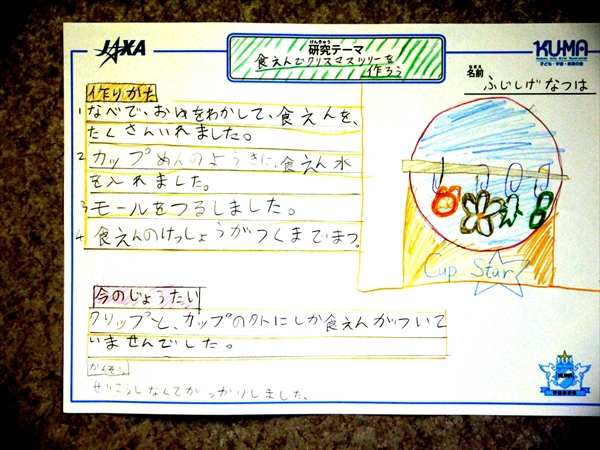 JAXA
けんきゅう
研究テーマ
食えんでクリスマスツリーを
作ろう
KU-MA
子ども・宇宙・未来の会
なまえ
名前 ふじしげ なつは
作りがた
1 なべで、おゆをわかして、食えんを、
たくさんいれました。
2 カップめんのようきに、食えん水
を入れました。
3 モールをつるしました。
4 食えんのけっしょうがつくまでまつ。
Cup Star
今のじょうたい
クリップと、カップの外にしか食えんがついて
いませんでした。
かんそう
せいこうしなくてがっかりしました。
KU-MA